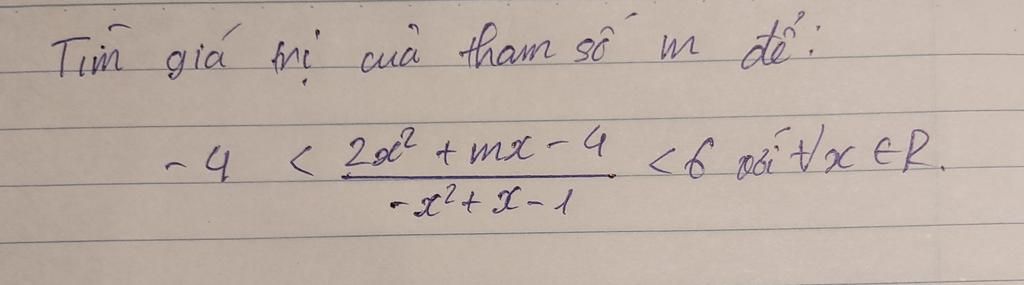 Tìm giá trị của tham số m để:
-4 < \frac{2x^2 + mx - 4}{-x^2 + x - 1} < 6 với ∀x ∈ R.